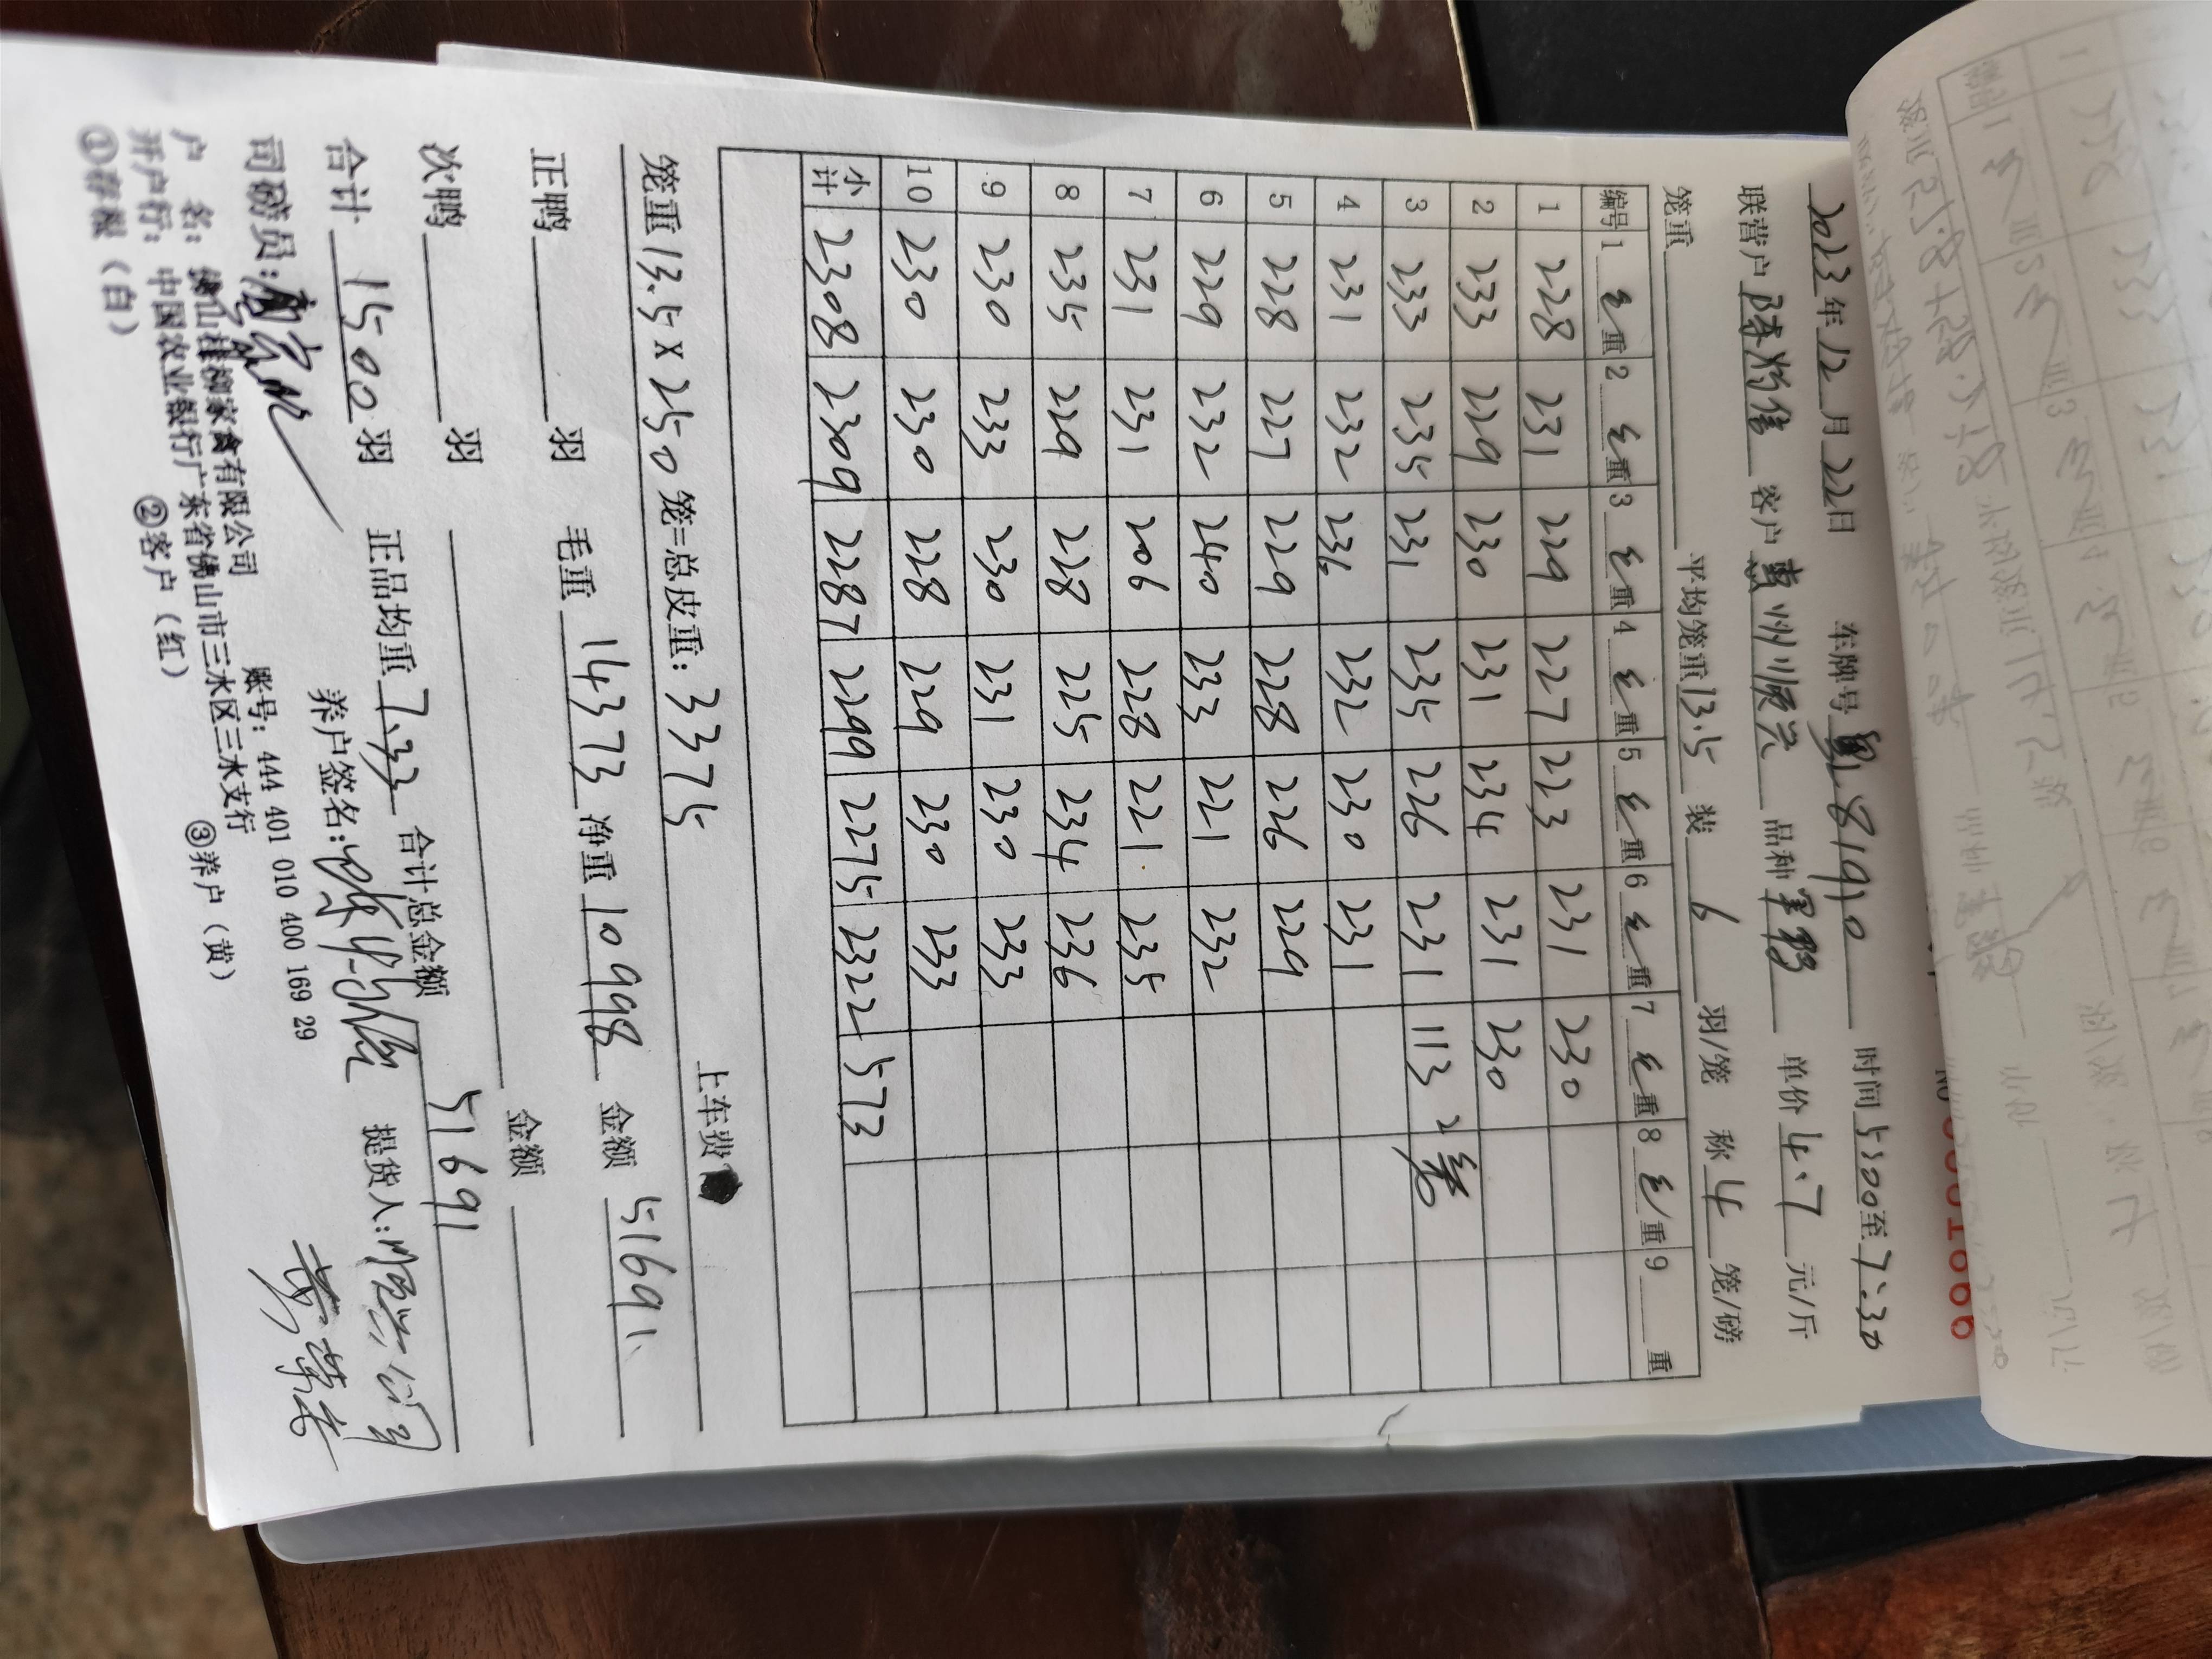 2023年12月22日 车牌号 8190 时间5:00至7:30
联营户 陈 客户 惠州顺兴 品种 单价4.7元/斤
笼重 平均笼重13.5 装6羽/笼 称4笼/磅
编号 1毛重 2毛重 3毛重 4毛重 5毛重 6毛重 7毛重 8毛重 9 重
1 228 231 229 227 223 231 230
2 233 229 230 231 234 231 230
3 233 235 231 235 226 231 113 2笼
4 231 232 236 232 230 231
5 228 227 229 228 226 229
6 229 232 240 233 221 232
7 231 231 206 228 221 235
8 235 229 228 225 234 236
9 230 233 230 231 230 233
10 230 230 228 229 230 233
小计 2308 2309 2287 2299 2275 2322 573
上车费
笼重13.5×250笼=总皮重:3375
正鸭 羽 毛重14373 净重10998 金额51691
次鸭 羽 金额
合计1500羽 正品均重7.33 合计总金额51691
司磅员: 养户签名: 提货人:顺兴公司
户 名:佛山桂柳家禽有限公司 账号:444 401 010 400 169 29
开户行:中国农业银行广东省佛山市三水区三水支行
①存根(白) ②客户(红) ③养户(黄)